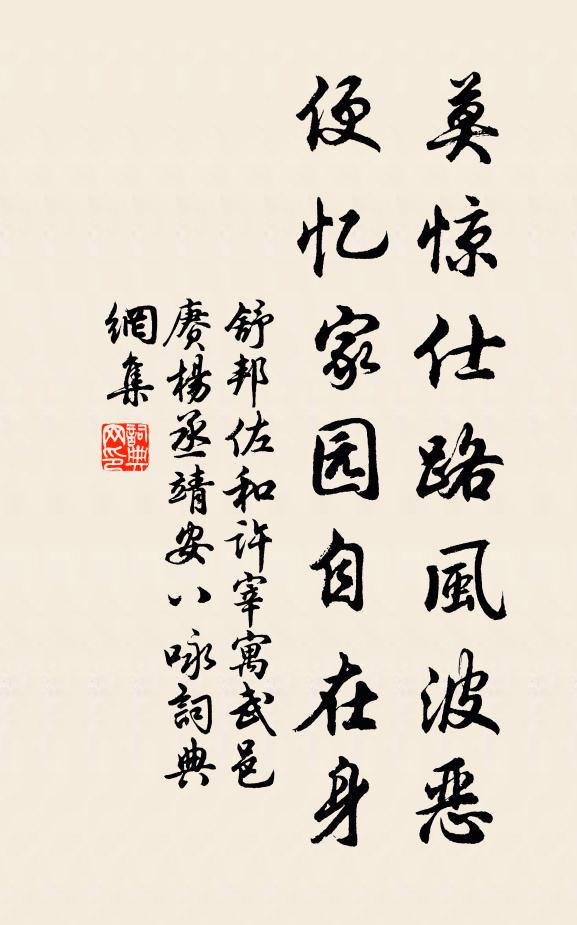 莫惊仕路風波恶
便忆家园自在身
舒邦佐和许宰寓武邑
赓楊丞靖安八咏詞典
網集
詞典
网印